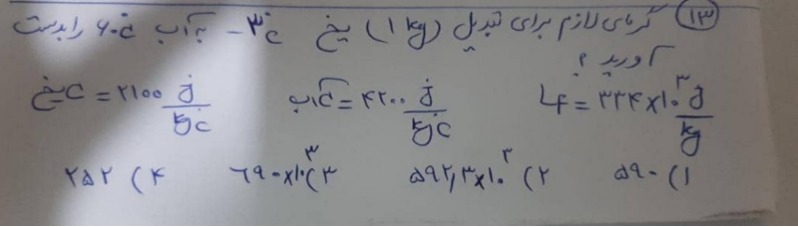 ۱۳) گرمای لازم برای تبدیل (۱ kg) یخ -۳°c به آب ۶۰°c را بدست
آورید؟
Lf = ۳۳۴×۱۰^۳ j/kg   cآب = ۴۲۰۰ j/kg°c   cیخ = ۲۱۰۰ j/kg°c
۱) ۵۹۰   ۲) ۵۹۲٫۳×۱۰^۳   ۳) ۶۹۰×۱۰^۳   ۴) ۲۵۲